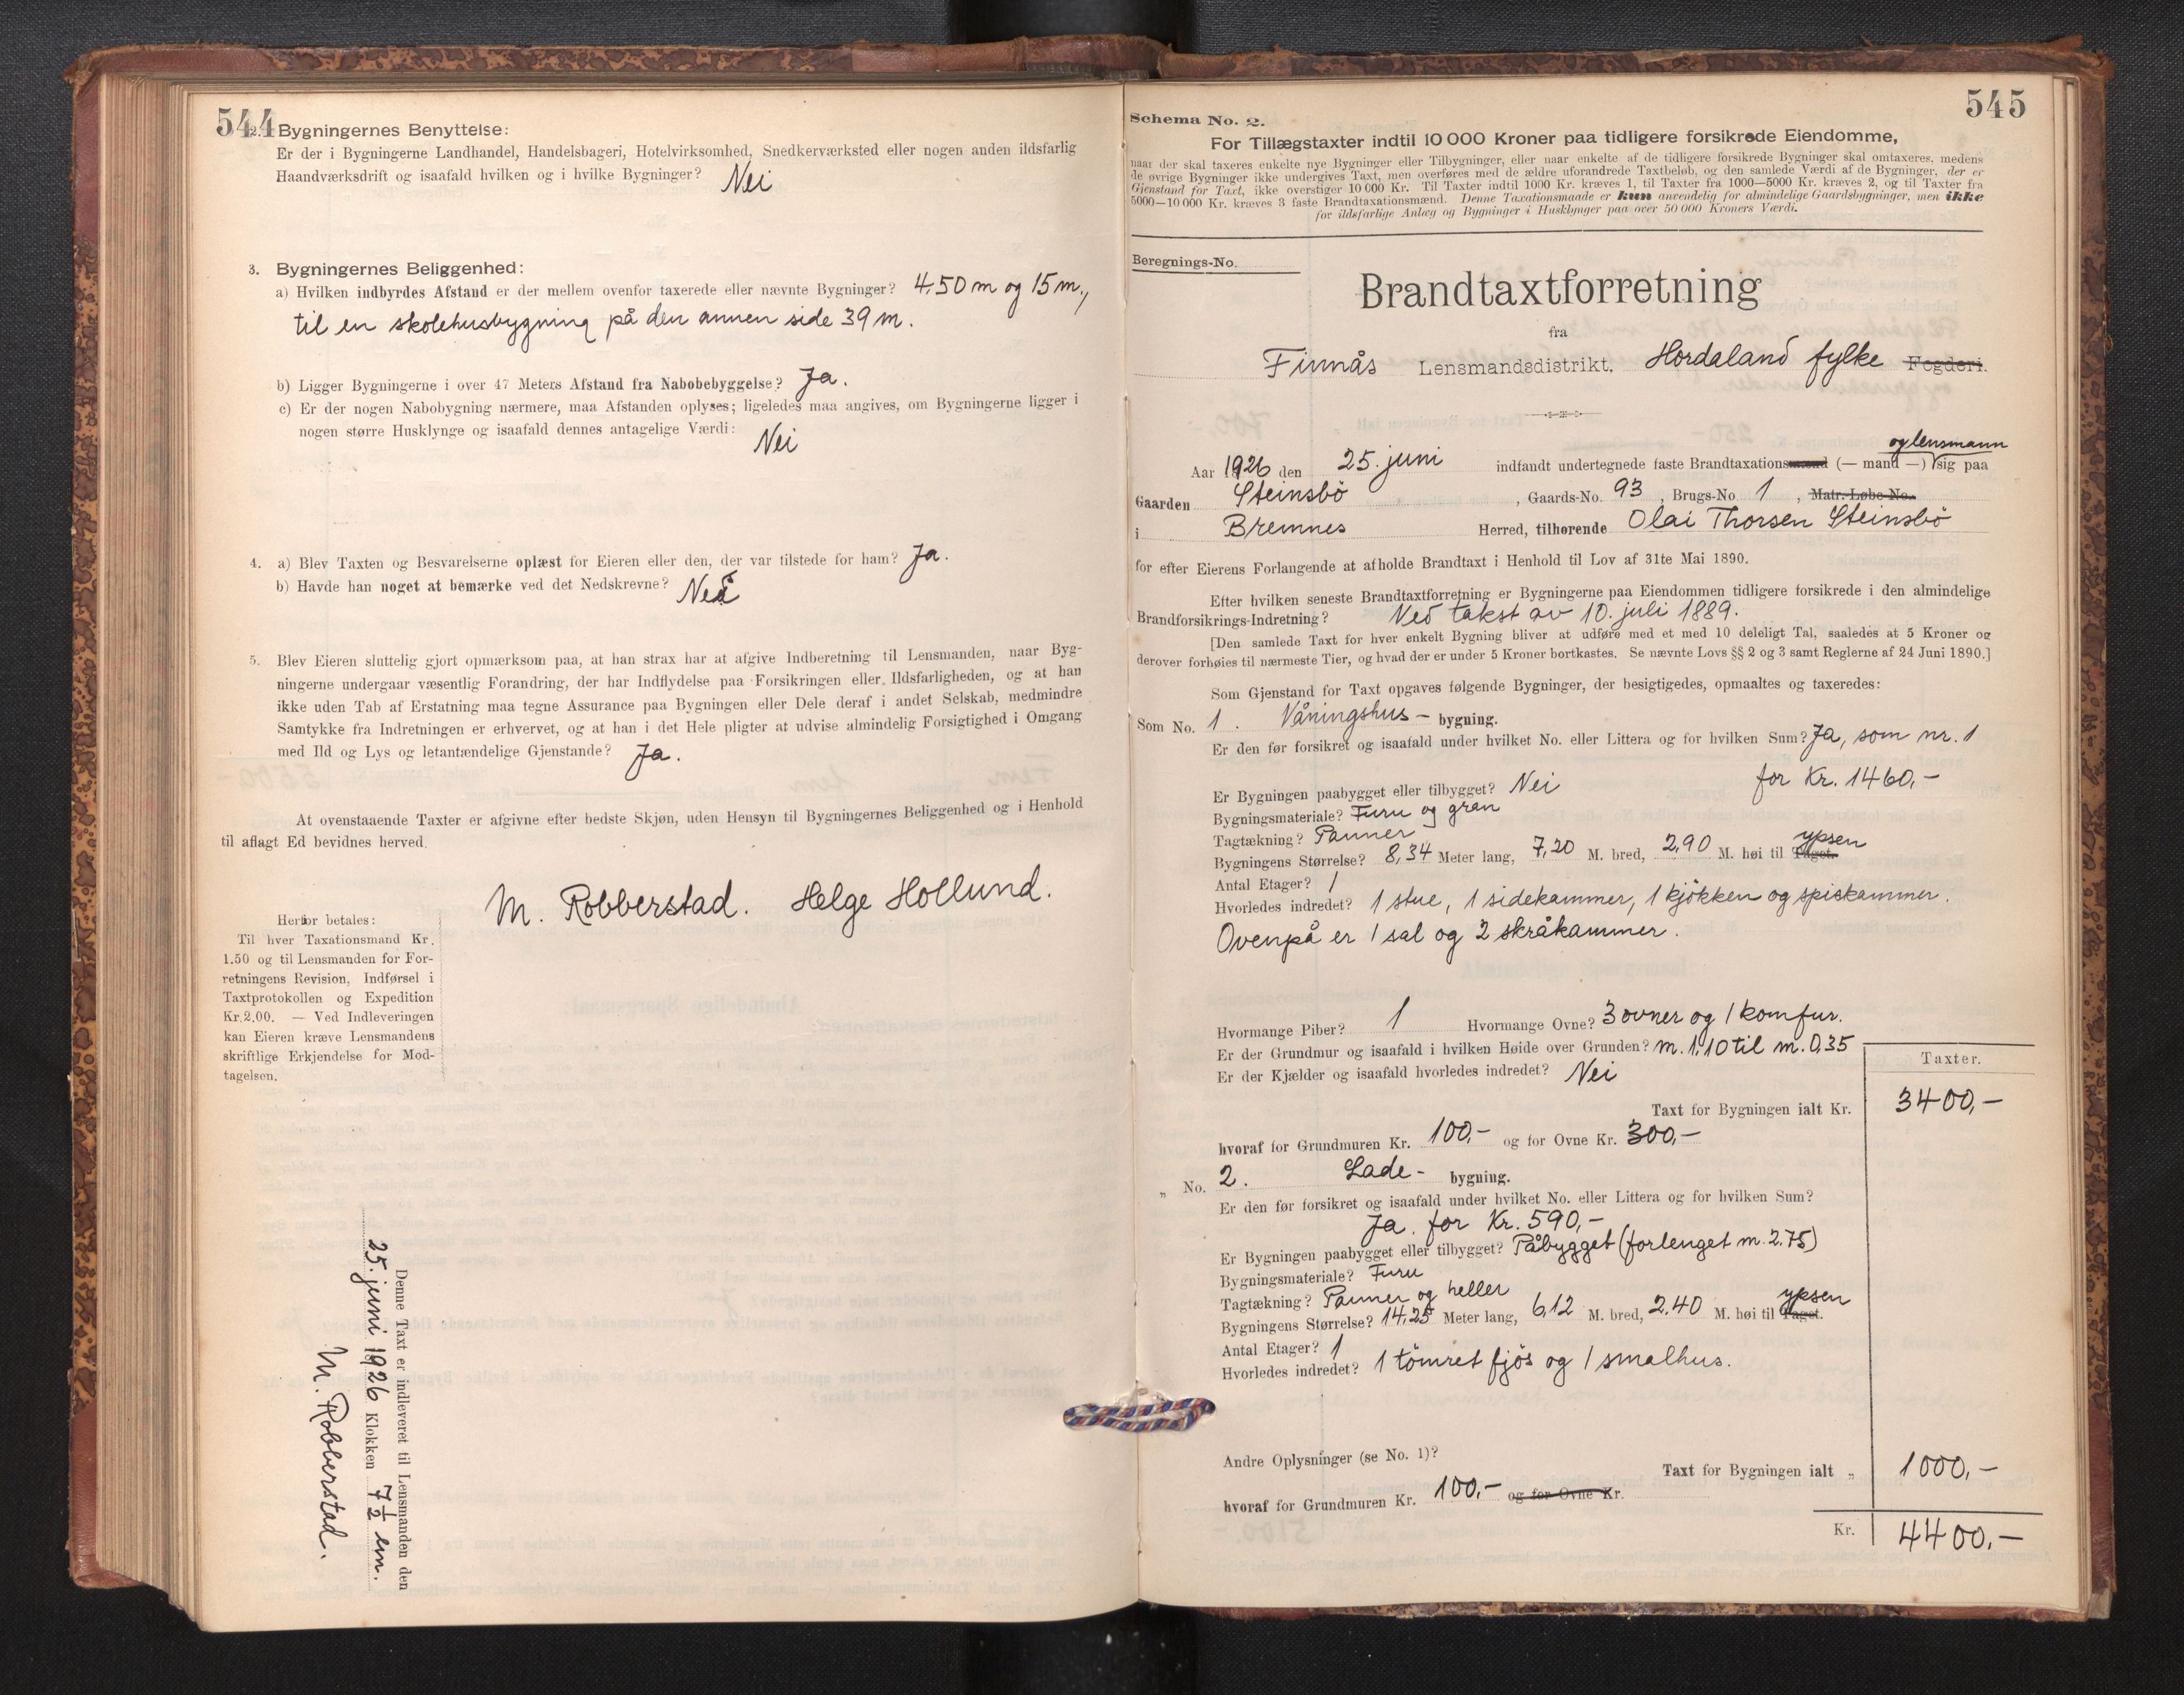 544
2. Bygningernes Benyttelse:
Er der i Bygningerne Landhandel, Handelsbageri, Hotelvirksomhed, Snedkerværksted eller nogen anden ildsfarlig
Haandværksdrift og isaafald hvilken og i hvilke Bygninger? Nei
3. Bygningernes Beliggenhed:
a) Hvilken indbyrdes Afstand er der mellem ovenfor taxerede eller nævnte Bygninger? 4,50 m og 15 m.,
til en skolehusbygning på den annen side 39 m.
b) Ligger Bygningerne i over 47 Meters Afstand fra Nabobebyggelse? Ja.
c) Er der nogen Nabobygning nærmere, maa Afstanden oplyses; ligeledes maa angives, om Bygningerne ligger i
nogen større Husklynge og isaafald dennes antagelige Værdi: Nei
4. a) Blev Taxten og Besvarelserne oplæst for Eieren eller den, der var tilstede for ham? Ja.
b) Havde han noget at bemærke ved det Nedskrevne? Nei
5. Blev Eieren sluttelig gjort opmærksom paa, at han strax har at afgive Indberetning til Lensmanden, naar Byg-
ningerne undergaar væsentlig Forandring, der har Indflydelse paa Forsikringen eller Ildsfarligheden, og at han
ikke uden Tab af Erstatning maa tegne Assurance paa Bygningen eller Dele deraf i andet Selskab, medmindre
Samtykke fra Indretningen er erhvervet, og at han i det Hele pligter at udvise almindelig Forsigtighed i Omgang
med Ild og Lys og letantændelige Gjenstande? Ja.
At ovenstaaende Taxter er afgivne efter bedste Skjøn, uden Hensyn til Bygningernes Beliggenhed og i Henhold
til aflagt Ed bevidnes herved.
M. Robberstad. Helge Hollund.
Herfor betales:
Til hver Taxationsmand Kr.
1.50 og til Lensmanden for For-
retningens Revision, Indførsel i
Taxtprotokollen og Expedition
Kr.2.00. — Ved Indleveringen
kan Eieren kræve Lensmandens
skriftlige Erkjendelse for Mod-
tagelsen.
Denne Taxt er indleveret til Lensmanden den
25. juni 1926 Klokken 7 1/2 em.
M. Robberstad.
545
Schema No. 2.
For Tillægstaxter indtil 10 000 Kroner paa tidligere forsikrede Eiendomme,
naar der skal taxeres enkelte nye Bygninger eller Tilbygninger, eller naar enkelte af de tidligere forsikrede Bygninger skal omtaxeres, medens
de øvrige Bygninger ikke undergives Taxt, men overføres med de ældre uforandrede Taxtbeløb, og den samlede Værdi af de Bygninger, der er
Gjenstand for Taxt, ikke overstiger 10 000 Kr. Til Taxter indtil 1000 Kr. kræves 1, til Taxter fra 1000—5000 Kr. kræves 2, og til Taxter fra
5000—10 000 Kr. kræves 3 faste Brandtaxationsmænd. Denne Taxationsmaade er kun anvendelig for almindelige Gaardsbygninger, men ikke
for ildsfarlige Anlæg og Bygninger i Husklynger paa over 50 000 Kroners Værdi.
Beregnings-No.
Brandtaxtforretning
fra
Finnås Lensmandsdistrikt, Hordaland fylke Fogderi.
og lensmann
Aar 1926 den 25. juni indfandt undertegnede faste Brandtaxationsmænd (— mand —) sig paa
Gaarden Steinsbö, Gaards-No. 93, Brugs-No 1, Matr.-Løbe-No.
i Bremnes Herred, tilhørende Olai Thorsen Steinsbö
for efter Eierens Forlangende at afholde Brandtaxt i Henhold til Lov af 31te Mai 1890.
Efter hvilken seneste Brandtaxtforretning er Bygningerne paa Eiendommen tidligere forsikrede i den almindelige
Brandforsikrings-Indretning? Ved takst av 10. juli 1889.
[Den samlede Taxt for hver enkelt Bygning bliver at udføre med et med 10 deleligt Tal, saaledes at 5 Kroner og
derover forhøies til nærmeste Tier, og hvad der er under 5 Kroner bortkastes. Se nævnte Lovs §§ 2 og 3 samt Reglerne af 24 Juni 1890.]
Som Gjenstand for Taxt opgaves følgende Bygninger, der besigtigedes, opmaaltes og taxeredes:
Som No. 1. Våningshus- bygning.
Er den før forsikret og isaafald under hvilket No. eller Littera og for hvilken Sum? Ja, som nr. 1
for Kr. 1460,-
Er Bygningen paabygget eller tilbygget? Nei
Bygningsmateriale? Furu og gran
Tagtækning? Panner
ypsen
Bygningens Størrelse? 8,34 Meter lang, 7,20 M. bred, 2,90 M. høi til Taget.
Antal Etager? 1
Hvorledes indredet? 1 stue, 1 sidekammer, 1 kjökken og spiskammer.
Ovenpå er 1 sal og 2 skråkammer.
Hvormange Piber? 1 Hvormange Ovne? 3 ovner og 1 komfur.
Er der Grundmur og isaafald i hvilken Høide over Grunden? m. 1,10 til m. 0,35
Er der Kjælder og isaafald hvorledes indredet? Nei
Taxter.
Taxt for Bygningen ialt Kr. 3400,-
hvoraf for Grundmuren Kr. 100,- og for Ovne Kr. 300,-
„ No. 2. Lade- bygning.
Er den før forsikret og isaafald under hvilket No. eller Littera og for hvilken Sum?
Ja. for Kr. 590,-
Er Bygningen paabygget eller tilbygget? Påbygget (forlenget m. 2,75)
Bygningsmateriale? Furu
Tagtækning? Panner og heller
ypsen
Bygningens Størrelse? 14,25 Meter lang, 6,12 M. bred, 2,40 M. høi til Taget.
Antal Etager? 1
Hvorledes indredet? 1 tömret fjös og 1 smalhus.
Andre Oplysninger (se No. 1)?
Taxt for Bygningen ialt „ 1000,-
hvoraf for Grundmuren Kr. 100,- og for Ovne Kr.
Kr. 4400,-